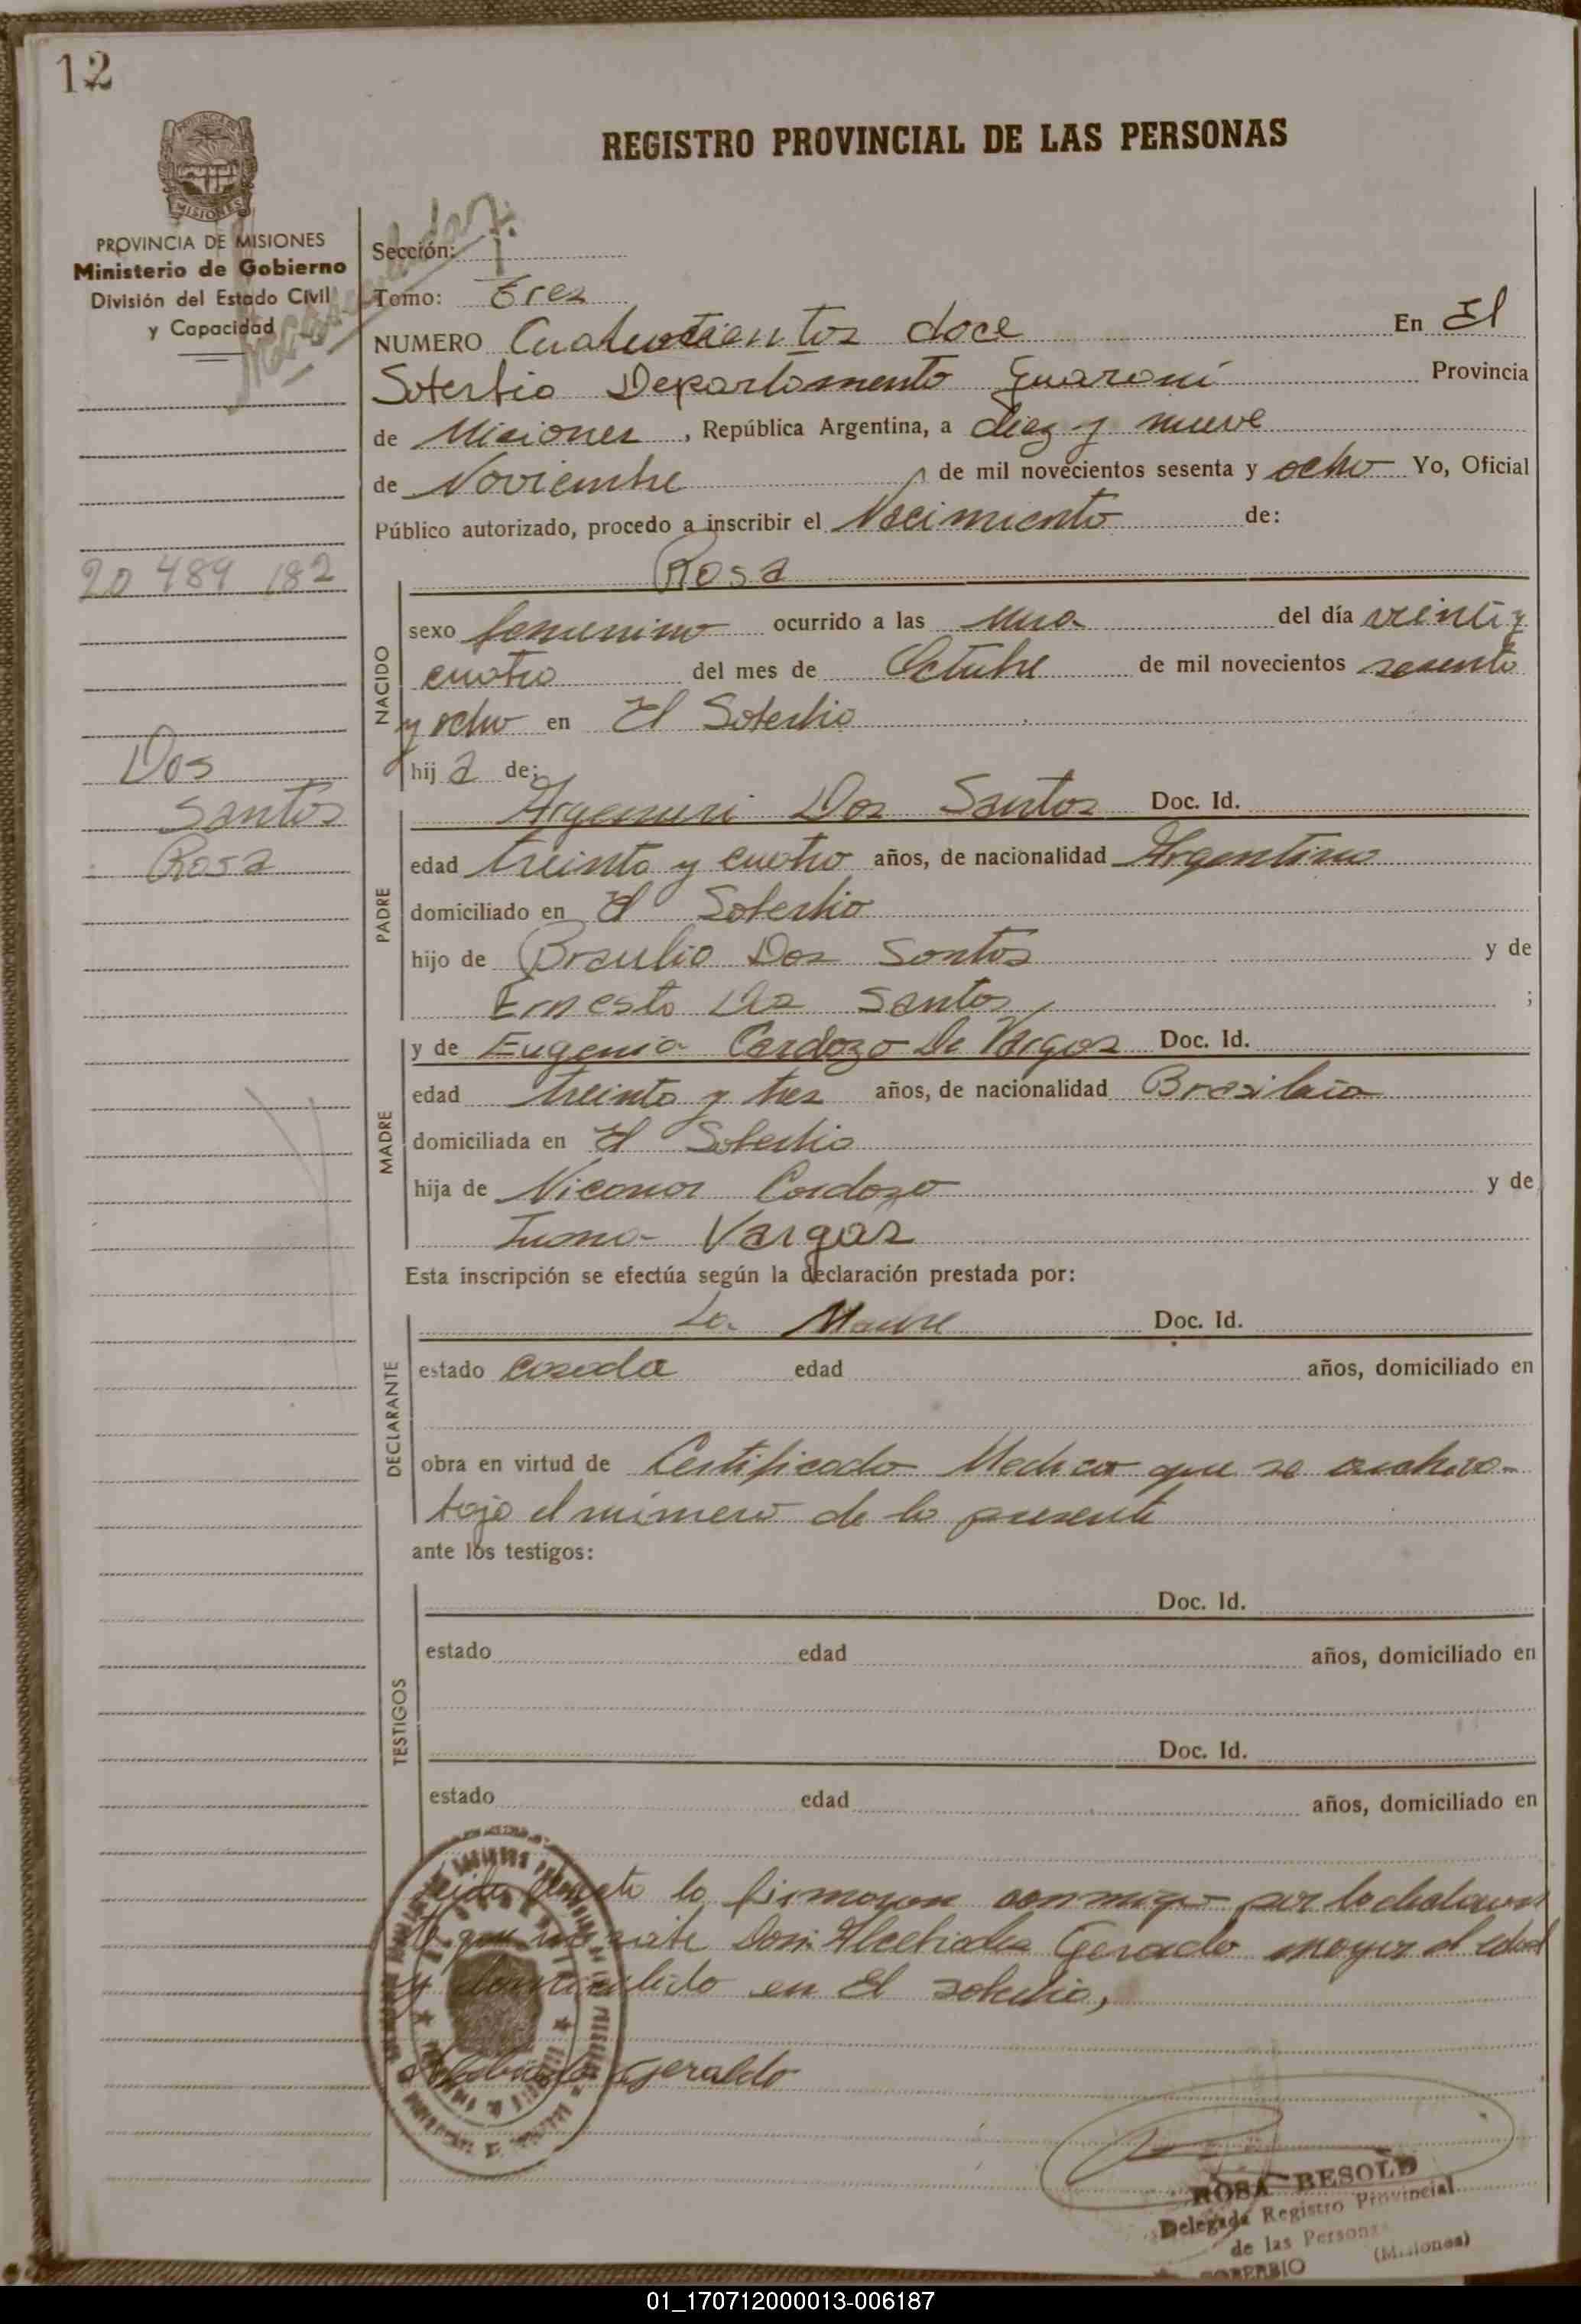 12
REGISTRO PROVINCIAL DE LAS PERSONAS
PROVINCIA DE MISIONES
MISIONES
PROVINCIA DE MISIONES
Ministerio de Gobierno
División del Estado Civil
y Capacidad
Sección: 1
Tomo: Tres
NUMERO Cuatrocientos doce En El
Soterbio Departamento Guaraní Provincia
de Misiones, República Argentina, a diez y nueve
de Noviembre de mil novecientos sesenta y ocho Yo, Oficial
Público autorizado, procedo a inscribir el Nacimiento de:
Rosa
20 489 182
NACIDO
sexo femenino ocurrido a las una del día veinti y
cuatro del mes de Octubre de mil novecientos sesenta
y ocho en El Soterbio
hija de:
Dos
Santos
Rosa
PADRE
Argemiri Dos Santos Doc. Id.
edad treinta y cuatro años, de nacionalidad Argentino
domiciliado en El Soterbio
hijo de Braulio Dos Santos y de
Ernesta Dos Santos ;
MADRE
y de Eugenia Cardozo De Vargas Doc. Id.
edad treinta y tres años, de nacionalidad Brasilera
domiciliada en El Soterbio
hija de Nicanor Cardozo y de
Juana Vargas
Esta inscripción se efectúa según la declaración prestada por:
DECLARANTE
La Madre Doc. Id.
estado casada edad años, domiciliado en
obra en virtud de Certificado Medico que se archiva
bajo el número de la presente
ante los testigos:
TESTIGOS
Doc. Id.
estado edad años, domiciliado en
Doc. Id.
estado edad años, domiciliado en
Leida el acta la firmaron conmigo por la declaran
te que no Don Gerardo mayor d edad
y domiciliado en El soterbio,
Geraldo
ROSA BESOLD
Delegada Registro Provincial
de las Personas
SOBERBIO (Misiones)
01_170712000013-006187